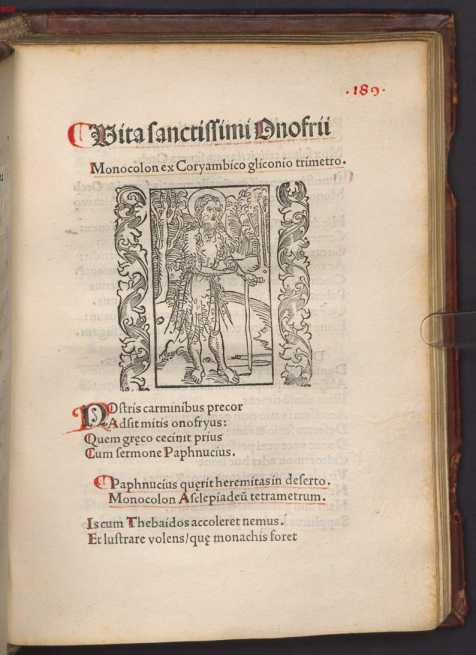 ·189·
Vita sanctissimi Onofrii
Monocolon ex Coryambico gliconio trimetro.
NOstris carminibus precor
Adsit mitis onofryus:
Quem gręco cecinit prius
Cum sermone Paphnucius.
Paphnucius quęrit heremitas in deserto.
Monocolon Asclepiadeū tetrametrum.
Is cum Thebaidos accoleret nemus.
Et lustrare volens/quę monachis foret